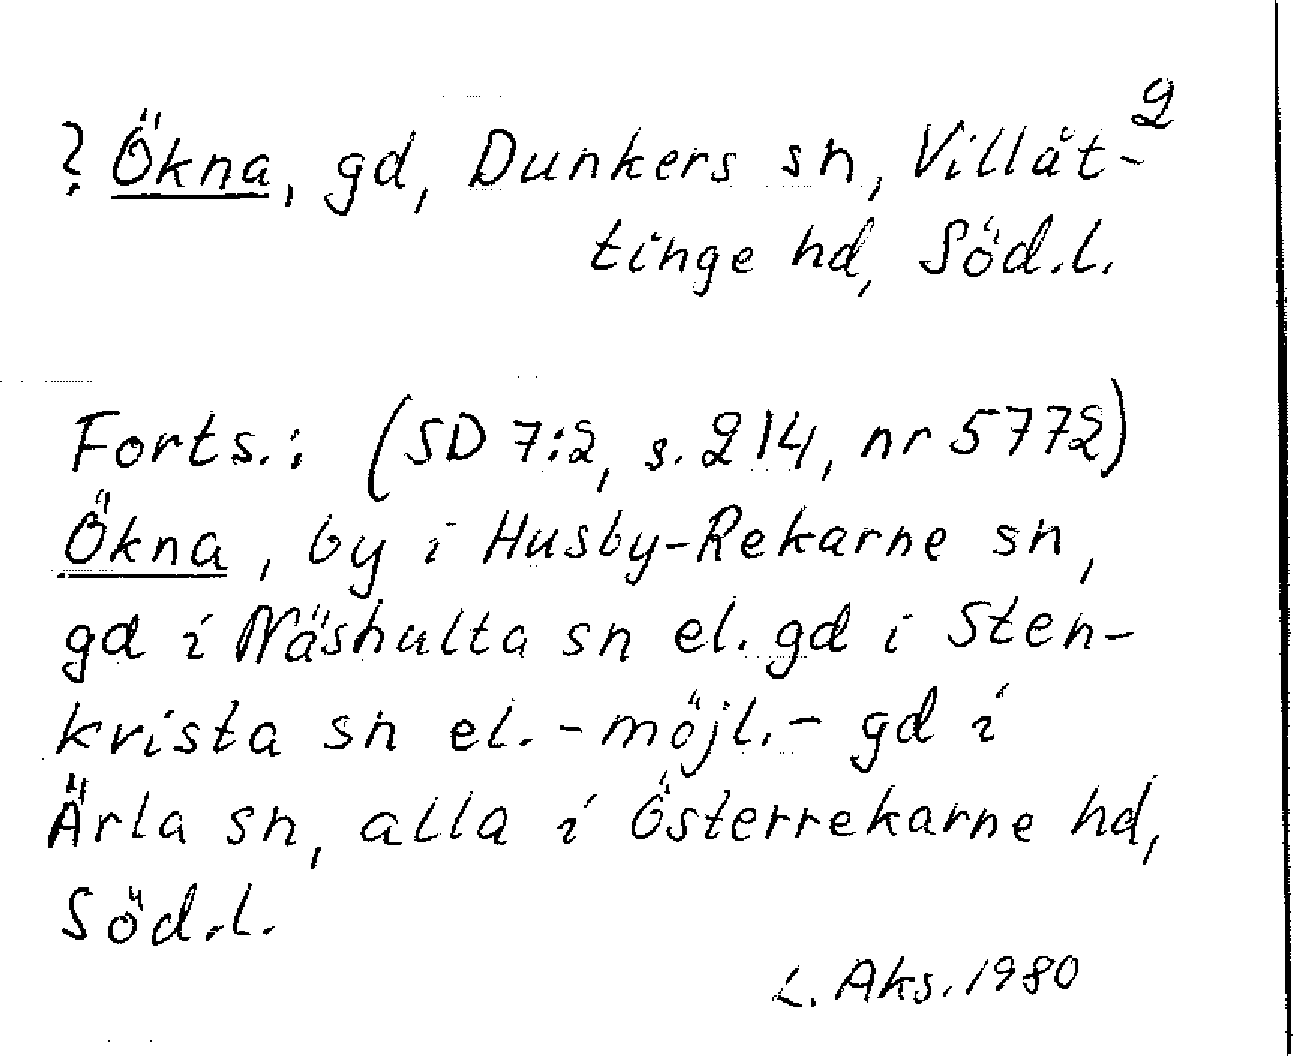 2
? Ökna, gd, Dunkers sn, Villåt-
tinge hd, Söd.l.
Forts.: (SD 7:2, s. 214, nr 5772)
Ökna, by i Husby-Rekarne sn,
gd i Näshulta sn el. gd i Sten-
krista sn el. - möjl. - gd i
Ärla sn, alla i Österrekarne hd,
Söd.l.
L. Aks. 1980